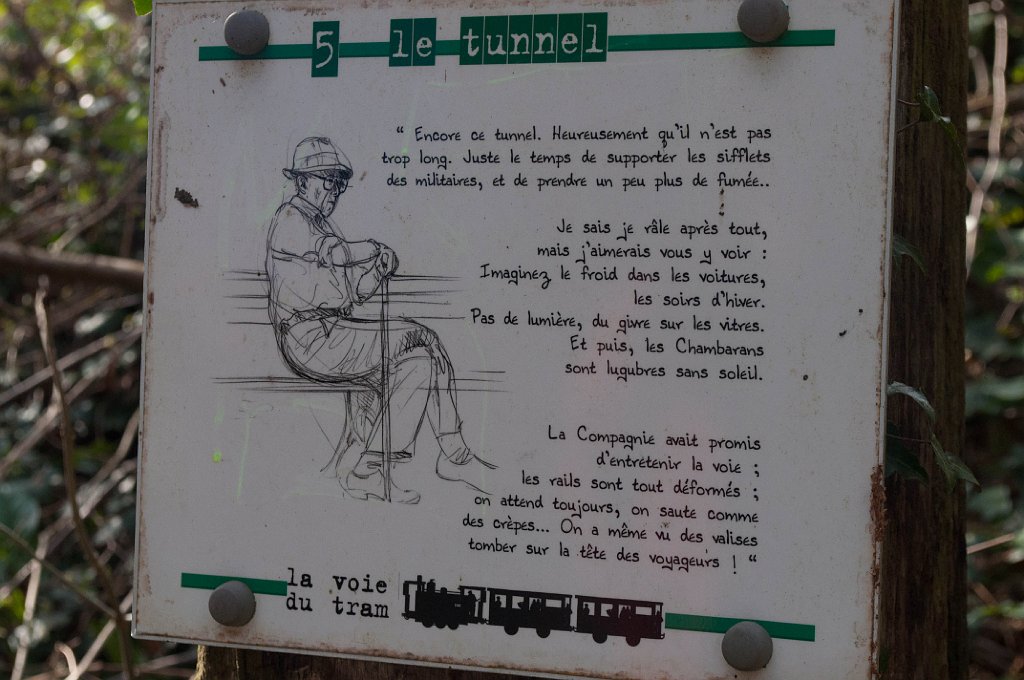 5 le tunnel
“ Encore ce tunnel. Heureusement qu'il n'est pas
trop long. Juste le temps de supporter les sifflets
des militaires, et de prendre un peu plus de fumée..
Je sais je râle après tout,
mais j'aimerais vous y voir :
Imaginez le froid dans les voitures,
les soirs d'hiver.
Pas de lumière, du givre sur les vitres.
Et puis, les Chambarans
sont lugubres sans soleil.
La Compagnie avait promis
d'entretenir la voie ;
les rails sont tout déformés ;
on attend toujours, on saute comme
des crèpes... On a même vu des valises
tomber sur la tête des voyageurs ! “
la voie
du tram